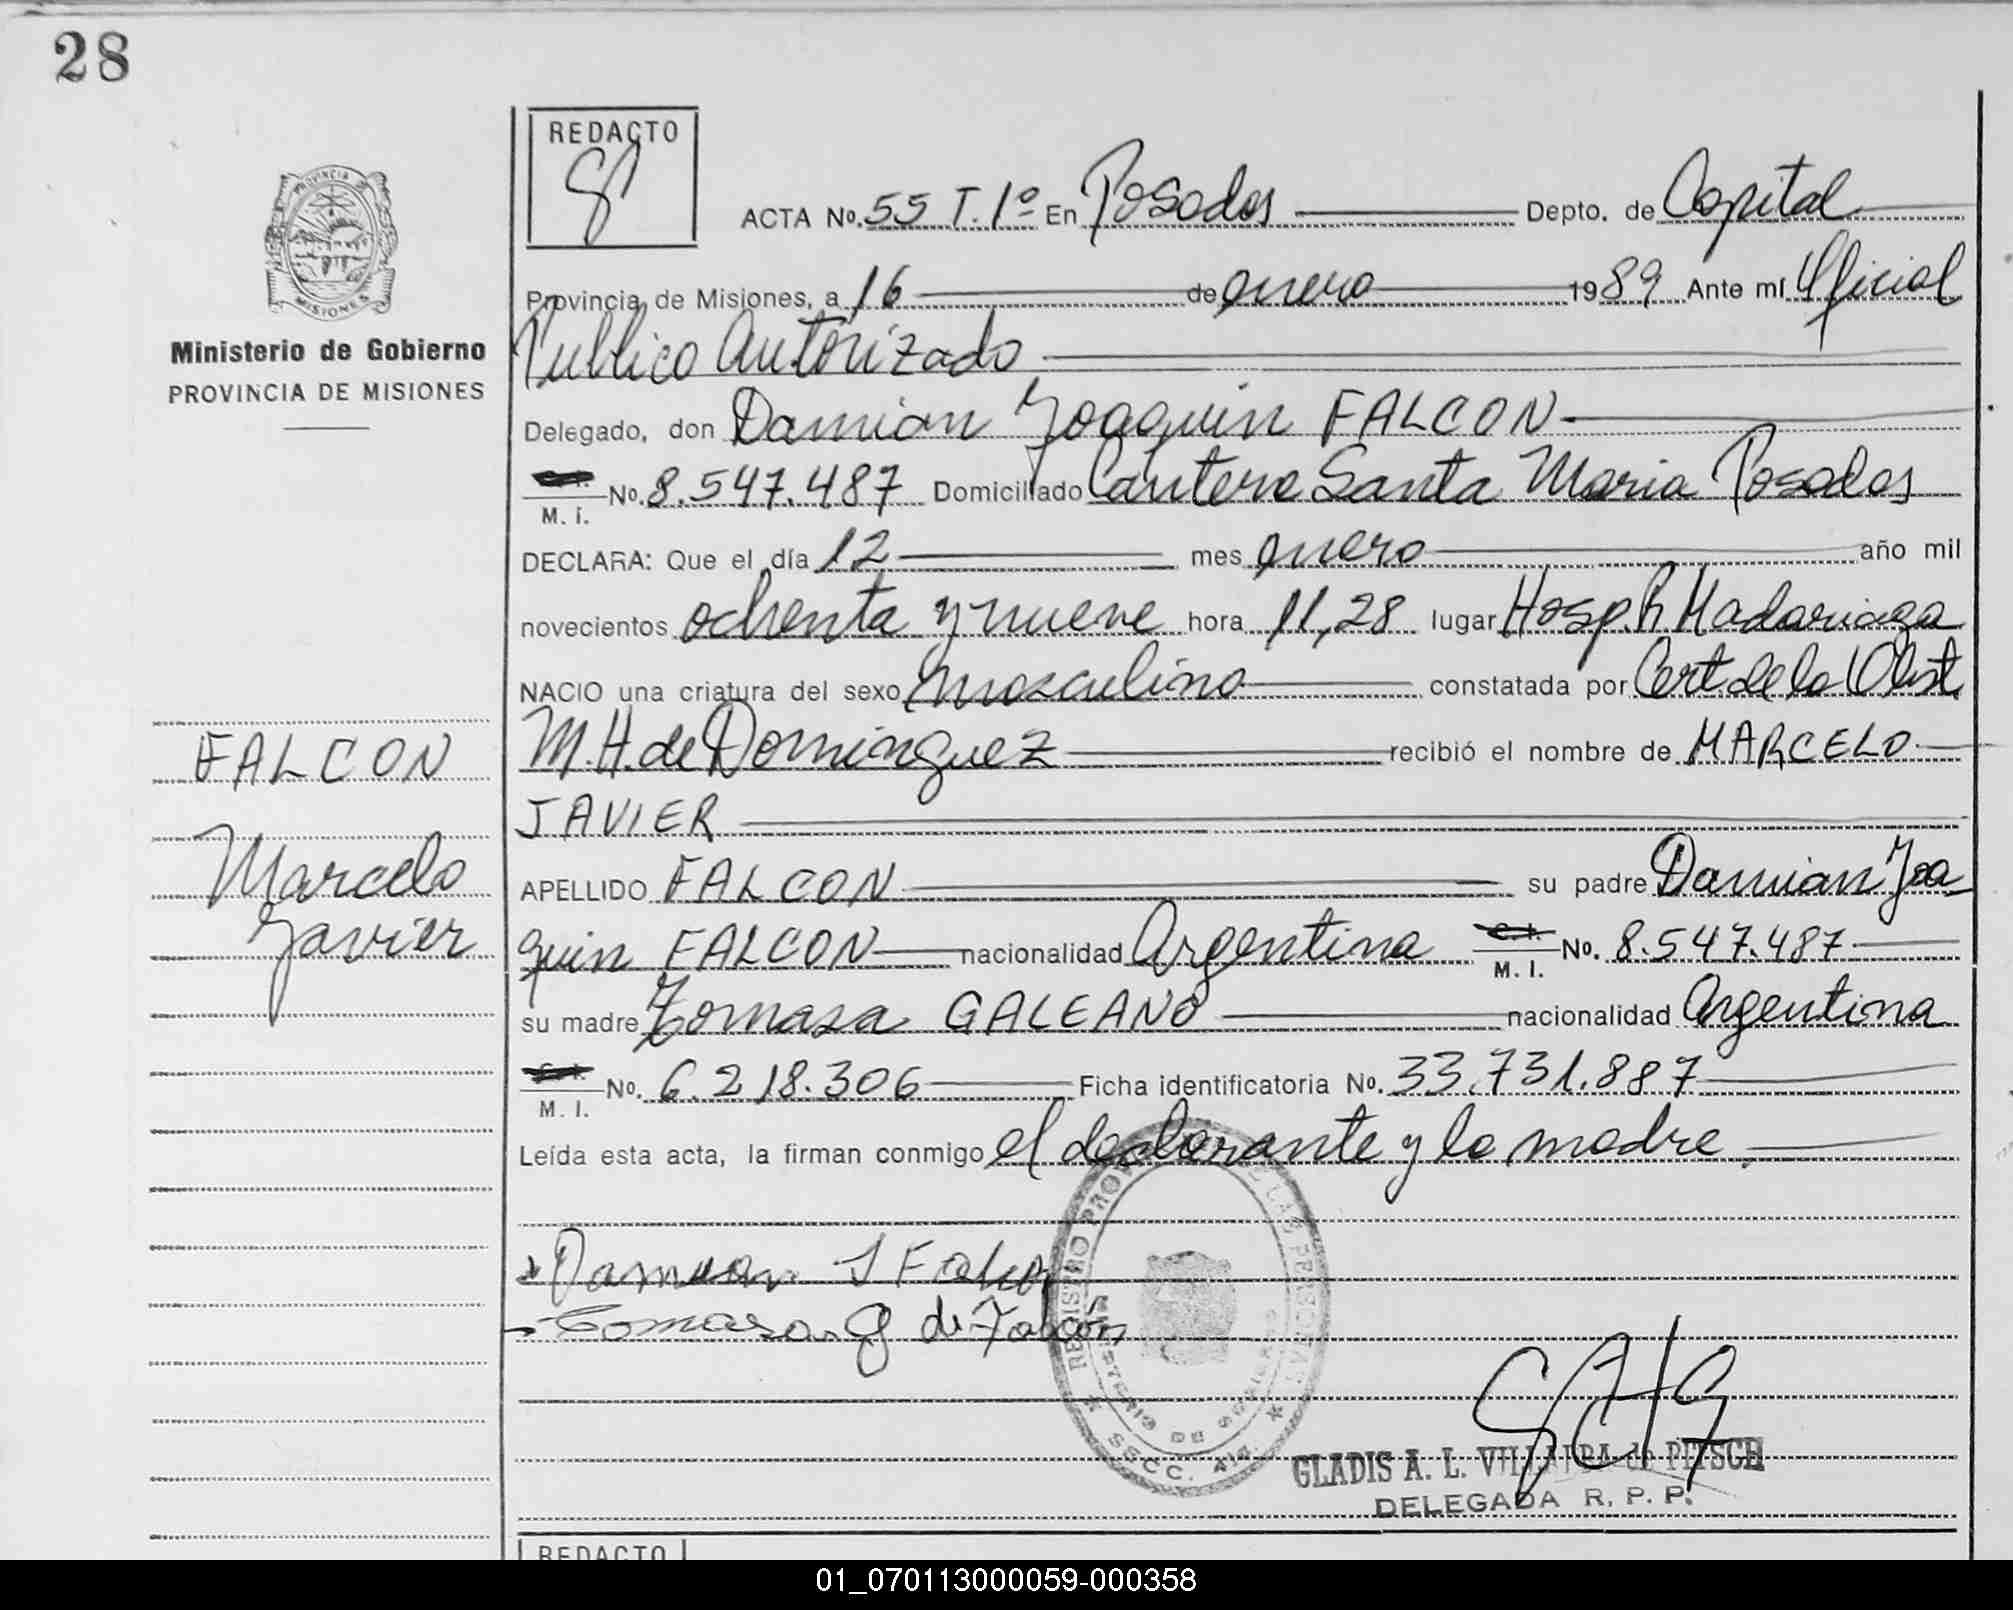 28
REDACTO
PROVINCIA DE
MISIONES
Ministerio de Gobierno
PROVINCIA DE MISIONES
ACTA No. 55 T. 1º En Posadas Depto. de Capital
Provincia de Misiones, a 16 de enero 1989 Ante mí Oficial
Publico Autorizado
Delegado, don Damian Joaquin FALCON
No. 8.547.487 Domiciliado Cantera Santa Maria Posadas
M. I.
DECLARA: Que el día 12 mes enero año mil
novecientos ochenta y nueve hora 11,28 lugar Hosp. R Madariaga
NACIO una criatura del sexo masculino constatada por Cert. de la Obst.
M.H. de Dominguez recibió el nombre de MARCELO
JAVIER
APELLIDO FALCON su padre Damian Joa-
quin FALCON nacionalidad Argentina No. 8.547.487
M. I.
su madre Tomasa GALEANO nacionalidad Argentina
No. 6.218.306 Ficha identificatoria No. 33.731.887
M. I.
Leída esta acta, la firman conmigo el declarante y la madre.
FALCON
Marcelo
Javier
Damian J Falcon
Tomasa G de Falcon
REGISTRO DE LAS PERSONAS
MINISTERIO DE GOBIERNO
SSCC.
GLADIS A. L. VILLALBA de PITSCH
DELEGADA R. P. P.
REDACTO
01_070113000059-000358